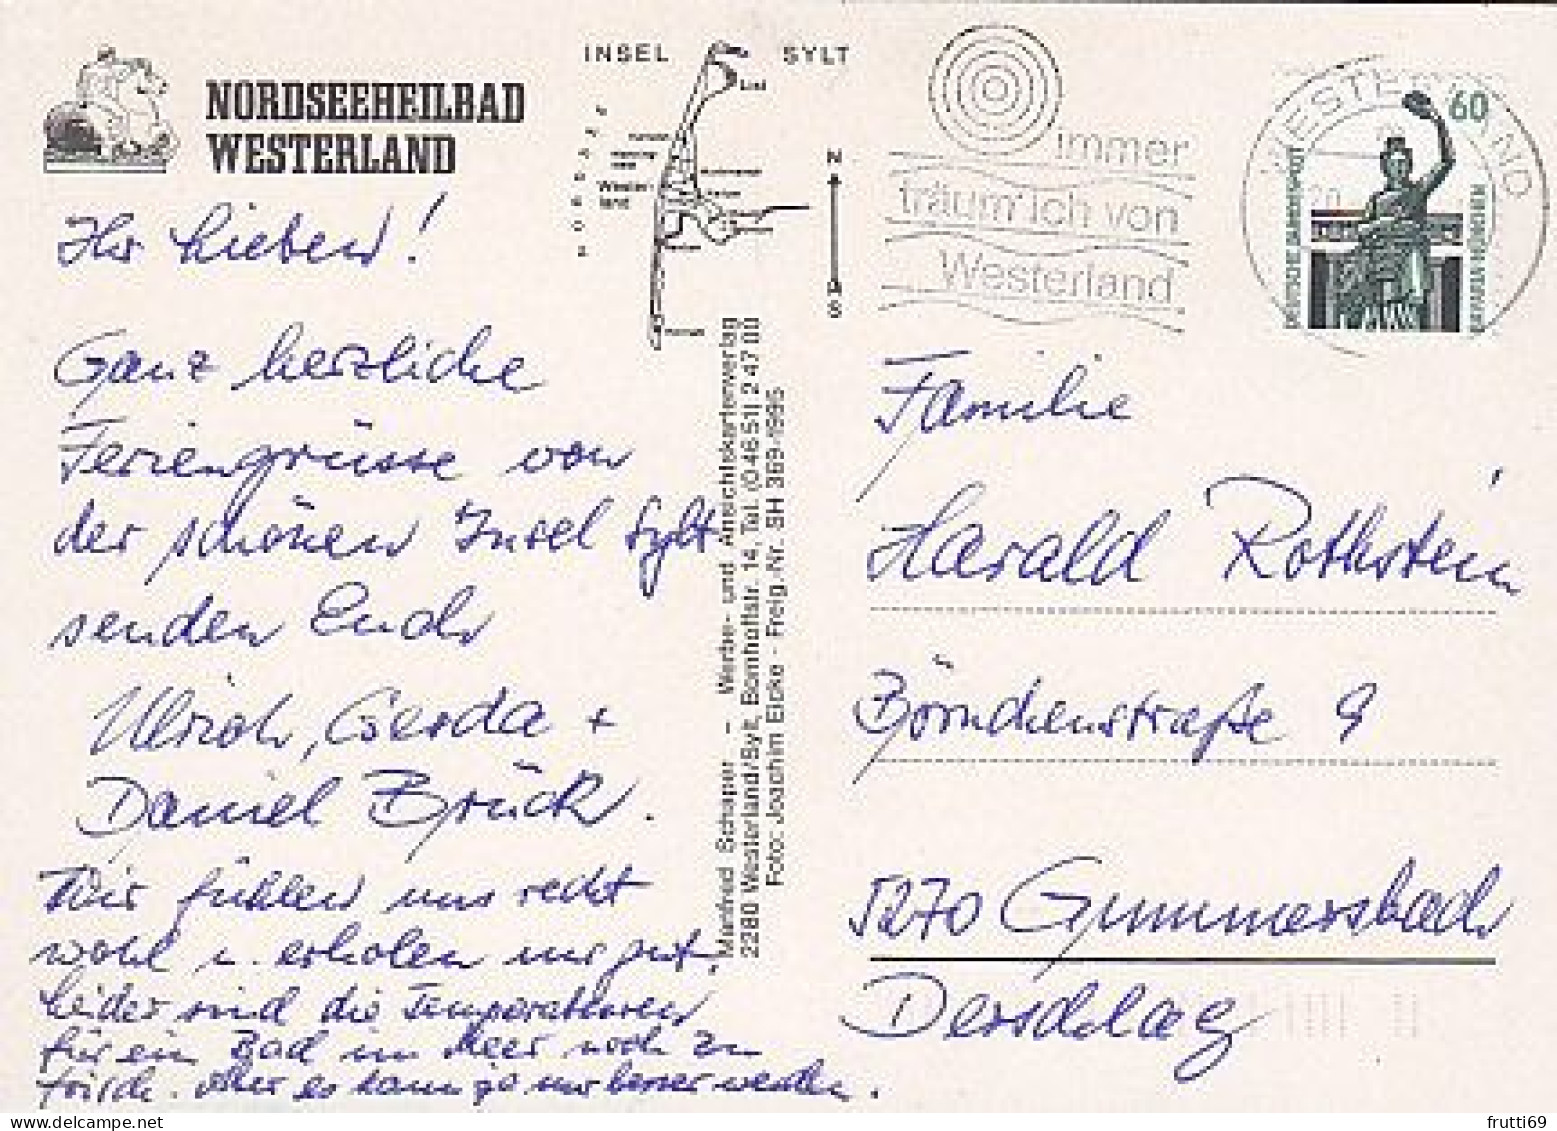 NORDSEEHEILBAD
WESTERLAND
INSEL SYLT
List
Wester-
land
NORDSEE
N
S
immer
träum' ich von
Westerland
WESTERLAND
20
60
DEUTSCHE BUNDESPOST
BAVARIA MÜNCHEN
Ihr Lieben!
Ganz herzliche
Feriengrüsse von
der schönen Insel Sylt
senden Euch
Ulrich, Gerda +
Daniel Brück.
Wir fühlen uns recht
wohl u. erholen uns gut,
leider sind die Temperaturen
für ein Bad im Meer noch zu
frisch. Aber es kann ja nur besser werden.
Manfred Schaper - Werbe- und Ansichtskartenverlag
2280 Westerland/Sylt, Bomhoffstr. 14, Tel. (0 46 51) 2 47 00
Foto: Joachim Eicke - Freig.-Nr. SH 369-1995
Familie
Harald Rothstein
Börnchenstraße 9
5270 Gummersbach
Derschlag
frutti69